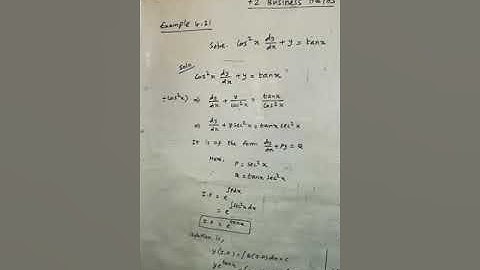 +2 Business Maths
Example 4.21
Solve cos²x dy/dx + y = tanx
Soln.
cos²x dy/dx + y = tanx
÷cos²x) ⇒ dy/dx + y/cos²x = tanx/cos²x
⇒ dy/dx + y sec²x = tanx sec²x
It is of the form dy/dx + Py = Q
Here, P = sec²x
Q = tanx sec²x
I.F = e^∫Pdx
= e^∫sec²x dx
I.F = e^tanx
Solution is,
y(I.F) = ∫Q(I.F)dx + c
y e^tanx